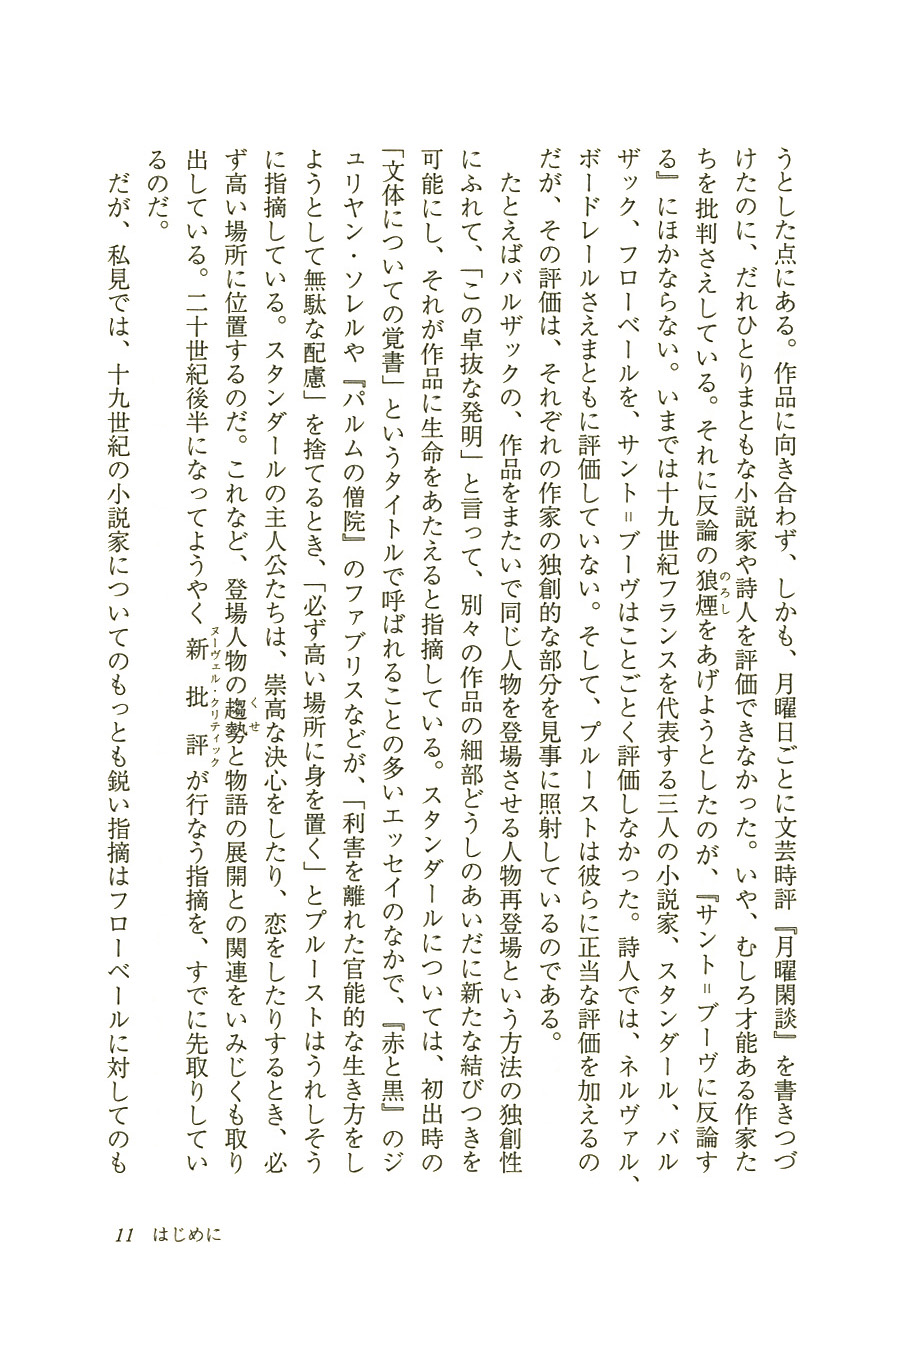 うとした点にある。作品に向き合わず、しかも、月曜日ごとに文芸時評『月曜閑談』を書きつづ
けたのに、だれひとりまともな小説家や詩人を評価できなかった。いや、むしろ才能ある作家た
ちを批判さえしている。それに反論の狼煙をあげようとしたのが、『サント=ブーヴに反論す
のろし
る』にほかならない。いまでは十九世紀フランスを代表する三人の小説家、スタンダール、バル
ザック、フローベールを、サント=ブーヴはことごとく評価しなかった。詩人では、ネルヴァル、
ボードレールさえまともに評価していない。そして、プルーストは彼らに正当な評価を加えるの
だが、その評価は、それぞれの作家の独創的な部分を見事に照射しているのである。
たとえばバルザックの、作品をまたいで同じ人物を登場させる人物再登場という方法の独創性
にふれて、「この卓抜な発明」と言って、別々の作品の細部どうしのあいだに新たな結びつきを
可能にし、それが作品に生命をあたえると指摘している。スタンダールについては、初出時の
「文体についての覚書」というタイトルで呼ばれることの多いエッセイのなかで、『赤と黒』のジ
ュリヤン・ソレルや『パルムの僧院』のファブリスなどが、「利害を離れた官能的な生き方をし
ようとして無駄な配慮」を捨てるとき、「必ず高い場所に身を置く」とプルーストはうれしそう
に指摘している。スタンダールの主人公たちは、崇高な決心をしたり、恋をしたりするとき、必
ず高い場所に位置するのだ。これなど、登場人物の趨勢と物語の展開との関連をいみじくも取り
くせ
出している。二十世紀後半になってようやく新批評が行なう指摘を、すでに先取りしてい
ヌーヴェル・クリティック
るのだ。
だが、私見では、十九世紀の小説家についてのもっとも鋭い指摘はフローベールに対してのも
11 はじめに